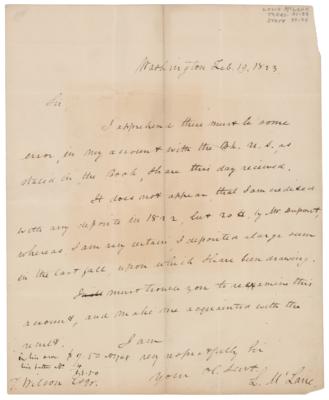 Louis McLane
Washington Feb. 19, 1823
Sir
I apprehend there must be some
error, in my account with the Bk. U. S. as
stated in the Book I have this day received.
It does not appear that I am credited
with any deposite in 1822 but by Mr Dupont,
whereas I am very certain I deposited a large sum
in the last fall upon which I have been drawing.
I must trouble you to reexamine this
account, and make me acquainted with the
result.
I am
very respectfully Sir
Your Ob. Servt.
L. McLane
T. Wilson Esqr.